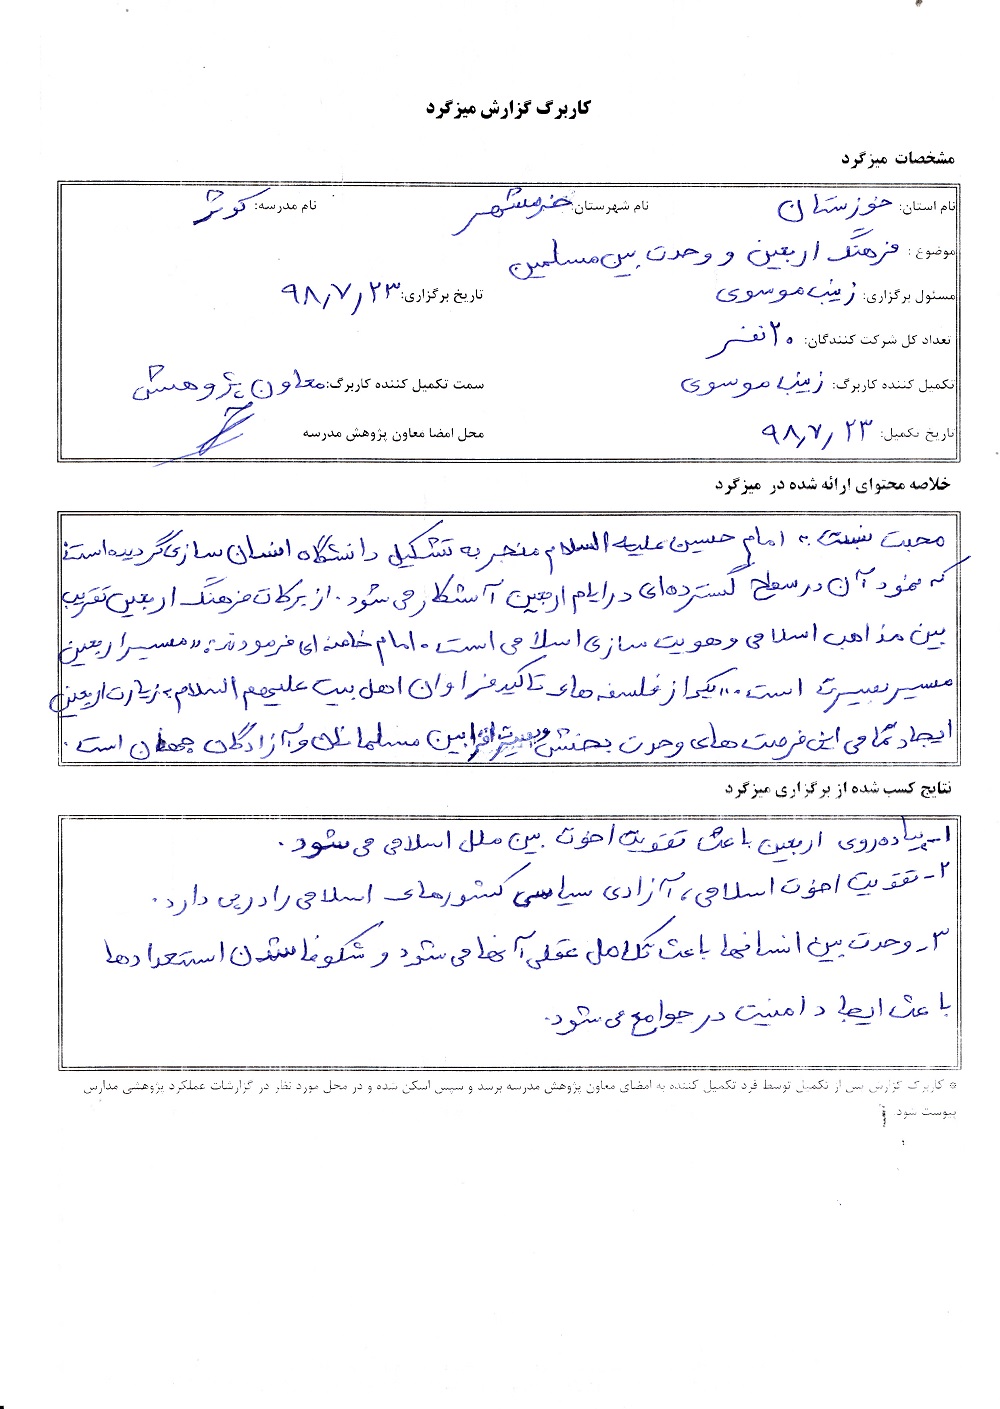 کاربرگ گزارش میزگرد
مشخصات میزگرد
نام استان: خوزستان نام شهرستان: خرمشهر نام مدرسه: کوثر
موضوع : فرهنگ اربعین و وحدت بین مسلمین
مسئول برگزاری: زینب موسوی تاریخ برگزاری: ۹۸/۷/۲۳
تعداد کل شرکت کنندگان: ۲۰ نفر
تکمیل کننده کاربرگ: زینب موسوی سمت تکمیل کننده کاربرگ: معاون پژوهش
تاریخ تکمیل: ۹۸/۷/۲۳ محل امضا معاون پژوهش مدرسه
خلاصه محتوای ارائه شده در میزگرد
محبت نسبت به امام حسین علیه السلام منجر به تشکیل دانشگاه انسان سازی گردیده است؛
که نمود آن در سطح گسترده‌ای در ایام اربعین آشکار می شود. از برکات فرهنگ اربعین تقریب
بین مذاهب اسلامی و هویت سازی اسلامی است. امام خامنه ای فرمودند: «مسیر اربعین
مسیر بصیرت است.» یکی از فلسفه های تاکید فراوان اهل بیت علیهم السلام به زیارت اربعین
ایجاد تمامی این فرصت های وحدت بخش و بصیرت افزا بین مسلمانان و آزادگان جهان است.
نتایج کسب شده از برگزاری میزگرد
۱- پیاده‌روی اربعین باعث تقویت اخوت بین ملل اسلامی می شود.
۲- تقویت اخوت اسلامی، آزادی سیاسی کشورهای اسلامی را در پی دارد.
۳- وحدت بین انسانها باعث تکامل عقلی آنها می شود و شکوفا شدن استعدادها
باعث ایجاد امنیت در جوامع می شود.
* کاربرگ گزارش پس از تکمیل توسط فرد تکمیل کننده به امضای معاون پژوهش مدرسه برسد و سپس اسکن شده و در محل مورد نظر در گزارشات عملکرد پژوهشی مدارس
پیوست شود